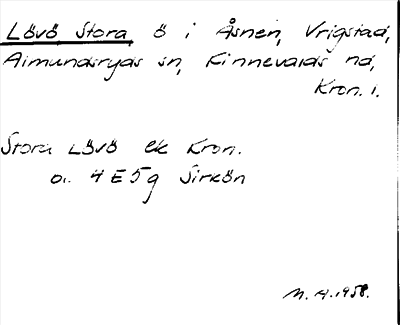 Lövö Stora ö i Åsnen, Vrigstad,
Almundsryds sn, Kinnevalds hd,
Kron. l.
Stora Lövö ek Kron.
o. 4E5g Sirkön
M. H. 1958.